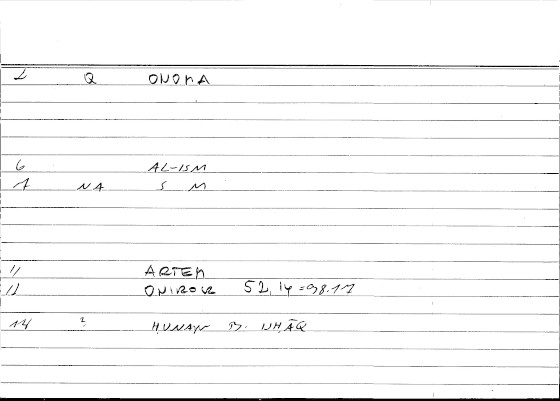 2 Q ONOMA
6 AL-ISM
7 NA S M
11 ARTEM
12 ONIROKR 52,14 = 98.17
14 2 HUNAYN B. ISHĀQ